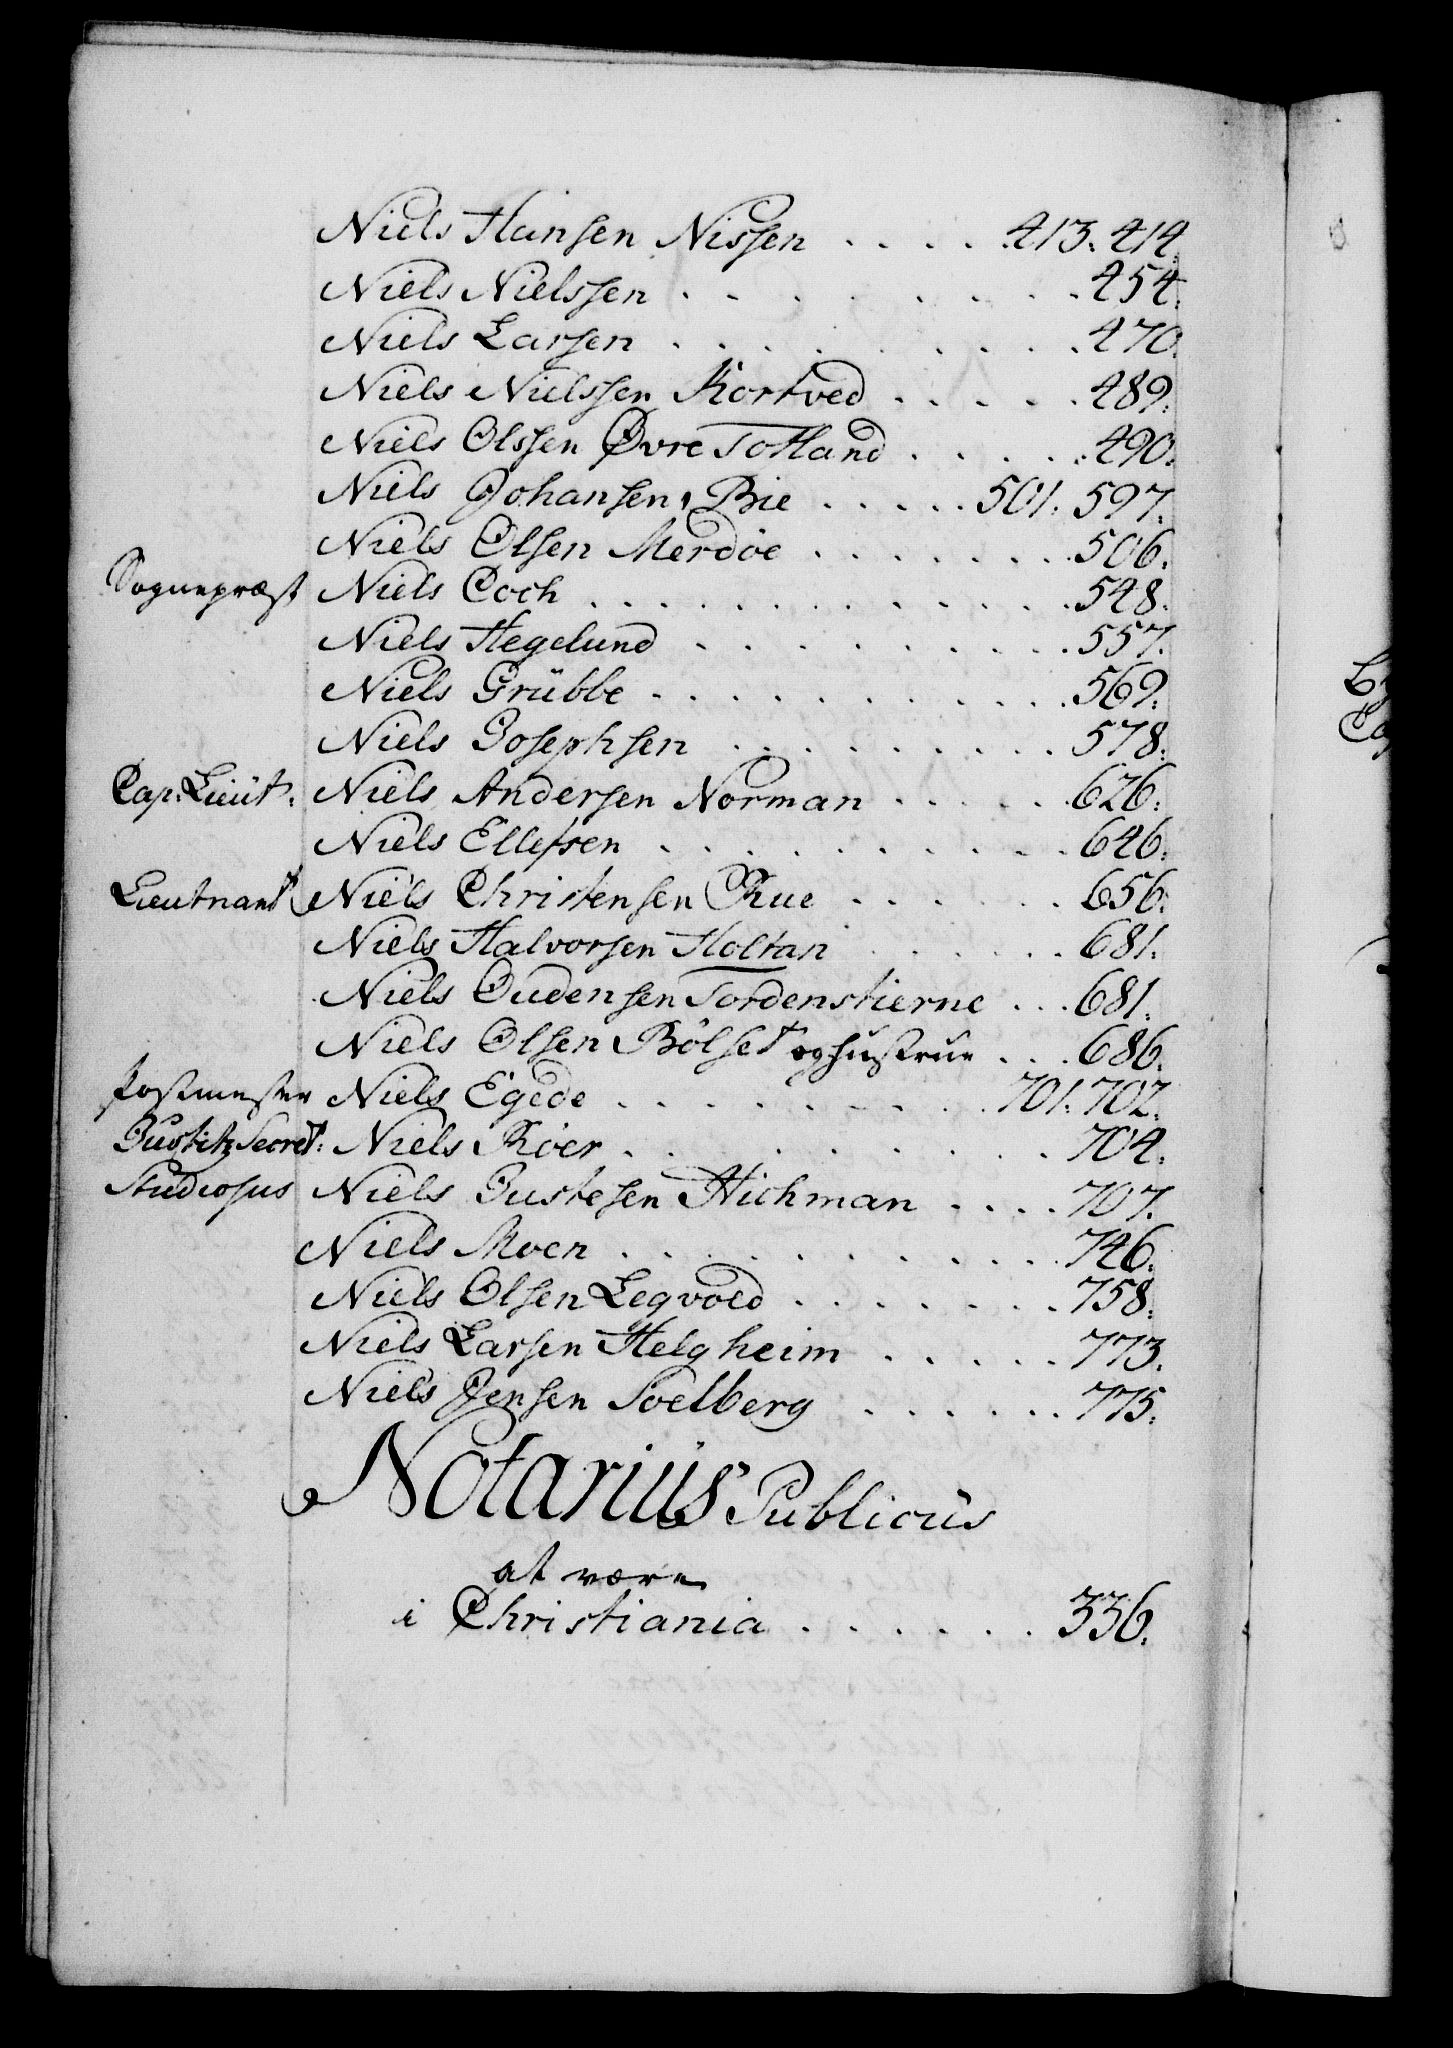 Niels Hansen Nissen . . . . . 413. 414.
Niels Nielssen . . . . . . . . . 454.
Niels Larsen . . . . . . . . . . 470.
Niels Nielssen Kortved . . . . . 489.
Niels Olssen Øvre Totland . . . . . 490.
Niels Johansen Bie . . . . . 501. 597.
Niels Olsen Merdöe . . . . . . . 506.
Sognepræst Niels Coch . . . . . . . . . . . . . 548.
Niels Hegelund . . . . . . . . . 557.
Niels Grübbe . . . . . . . . . . . 569.
Niels Josephsen . . . . . . . . . 578.
Cap: Lieut. Niels Andersen Norman . . . . . 626.
Niels Ellefsen . . . . . . . . . . 646.
Lieutnant Niels Christensen Rue . . . . . . 656.
Niels Halvorsen Holtan . . . . . . 681.
Niels Oudensen Tordenstierne . . . 681.
Niels Olsen Bölset og hustrue . . . 686.
Postmester Niels Egede . . . . . . . . . 701. 702.
Justitz Secret: Niels Röer . . . . . . . . . . . 704.
Studiosus Niels Justesen Hichman . . . . 707.
Niels Moen . . . . . . . . . . . . 746.
Niels Olsen Legvold . . . . . . . 758.
Niels Larsen Helgheim . . . . . 773.
Niels Jensen Soelberg . . . . . . 775.
Notarius Publicüs
at være
i Christiania . . . . . . . 336.